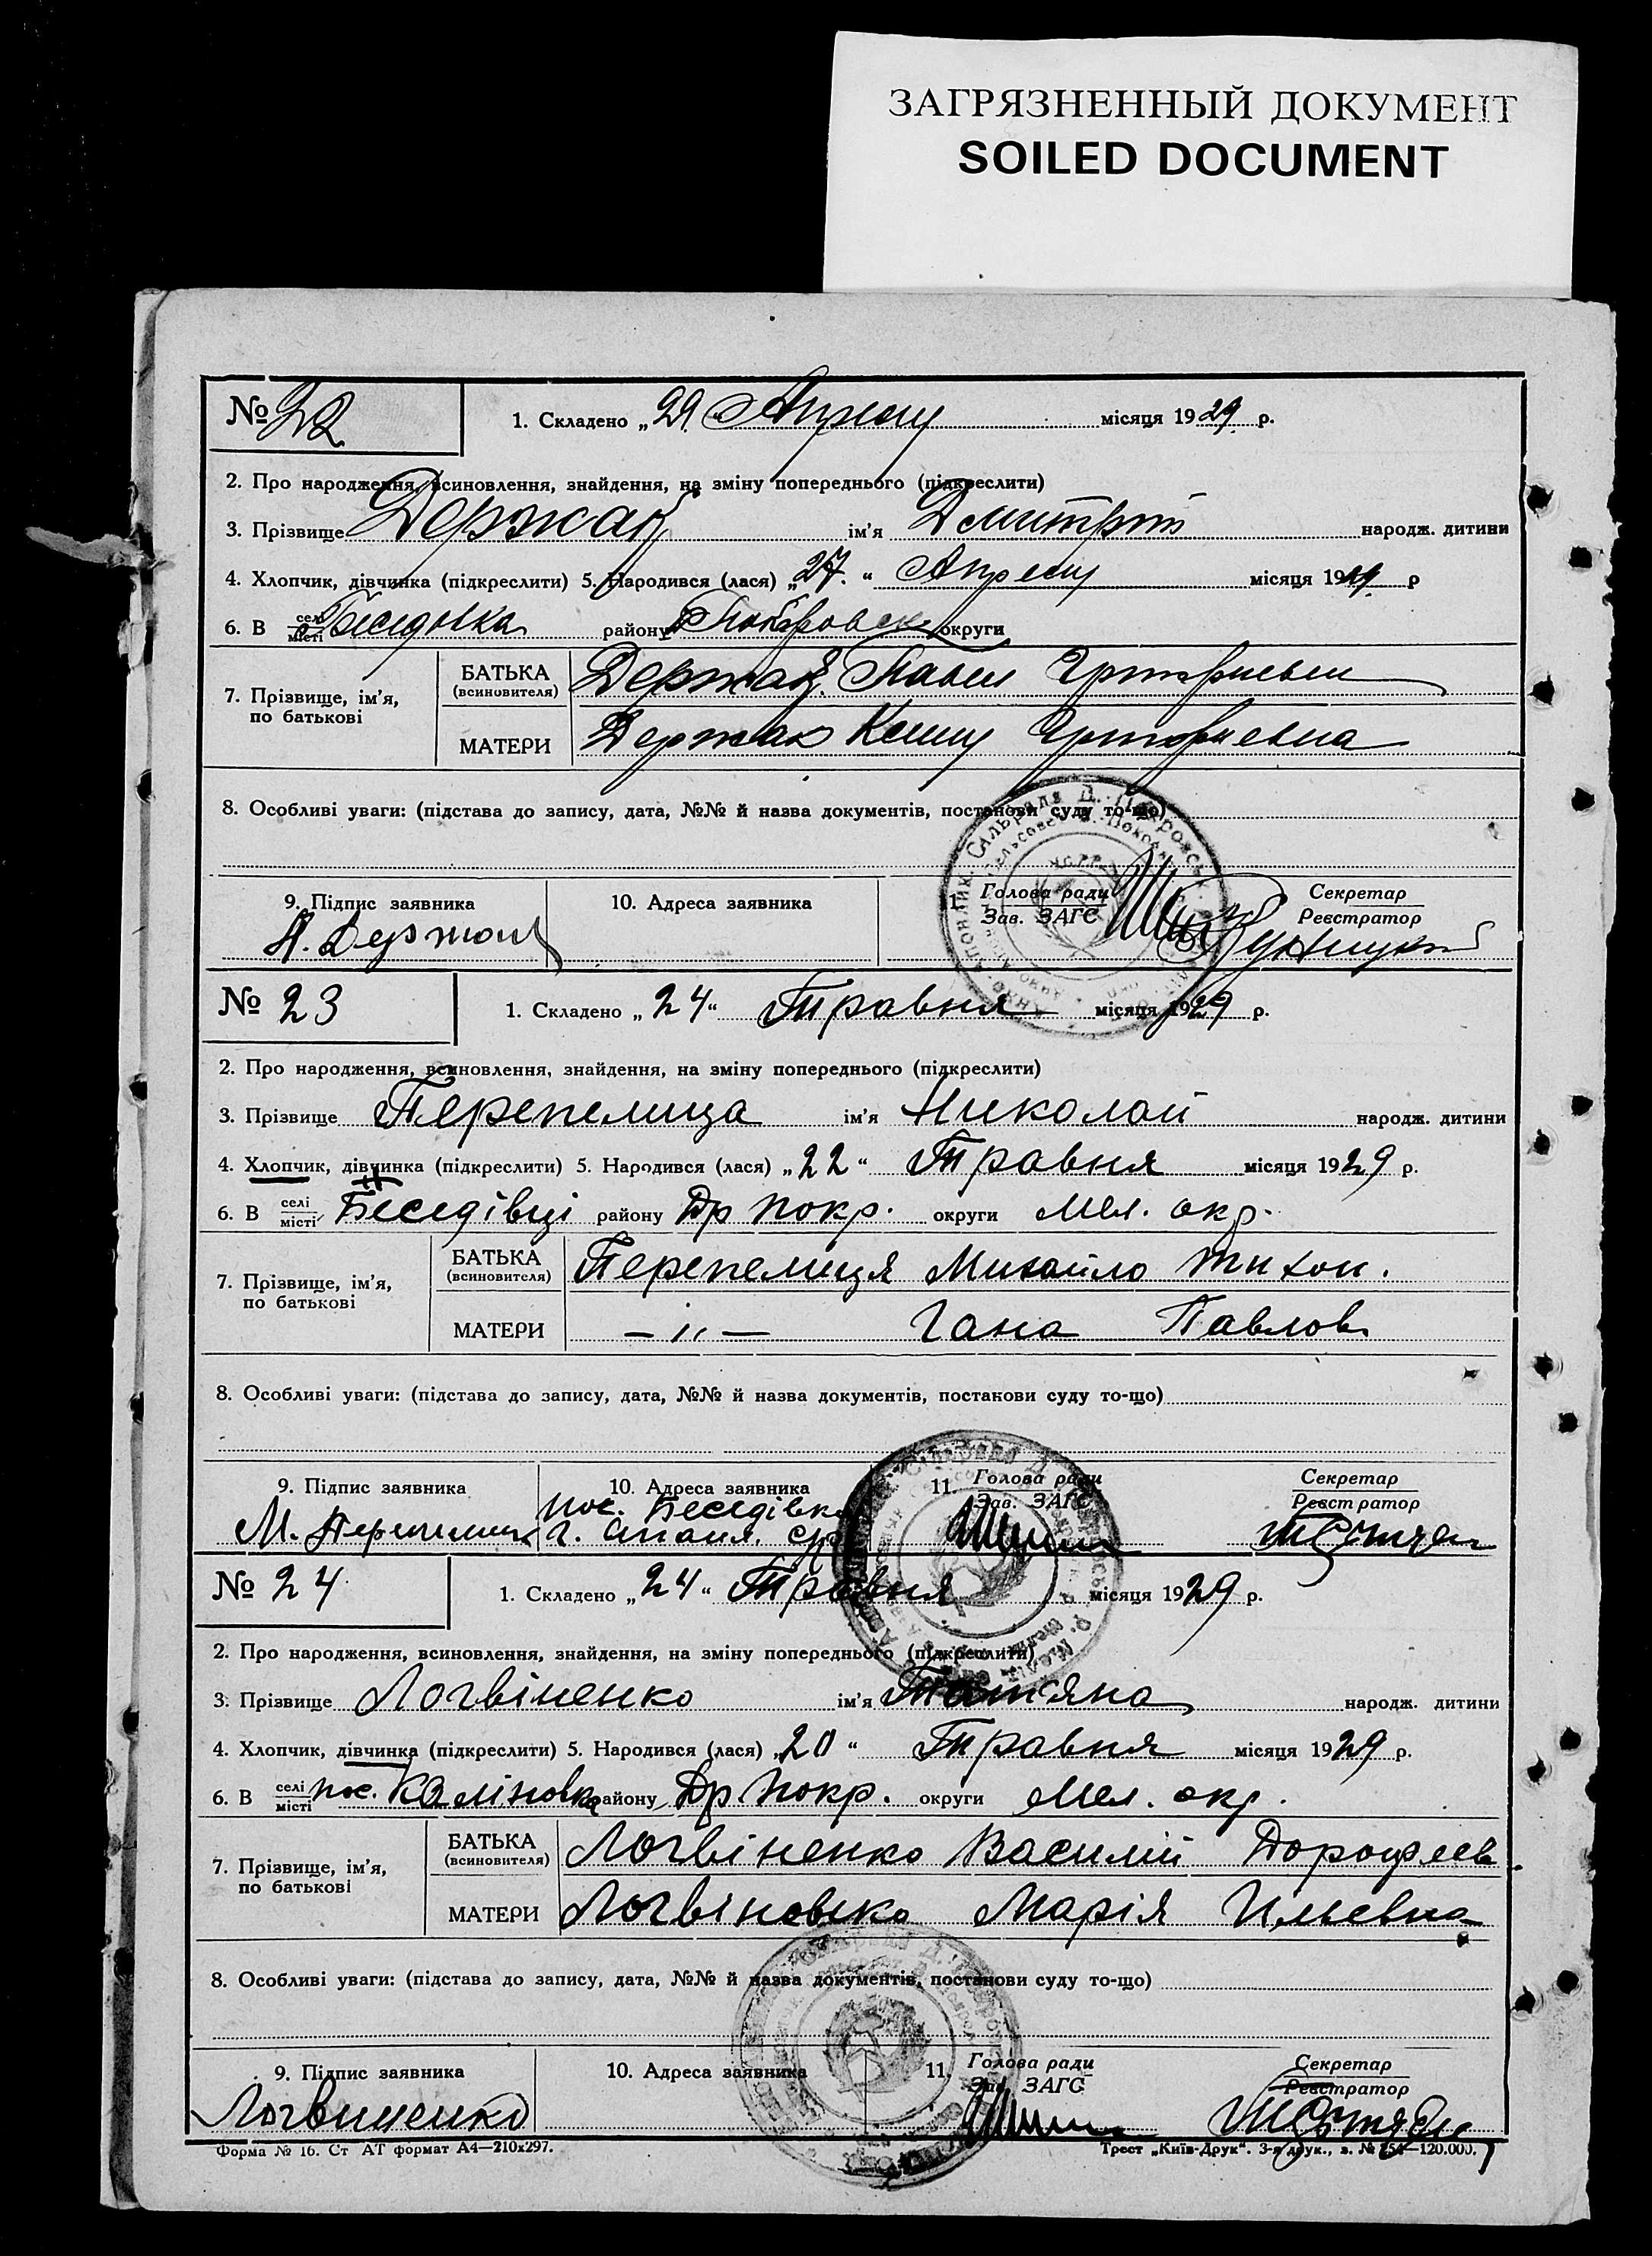 ЗАГРЯЗНЕННЫЙ ДОКУМЕНТ
SOILED DOCUMENT
№ 22 1. Складено „29“ Апрелу місяця 1929 р.
2. Про народження, всиновлення, знайдення, на зміну попереднього (підкреслити)
3. Прізвище Держак ім'я Дмитрий народж. дитини
4. Хлопчик, дівчинка (підкреслити) 5. Народився (лася) „27.“ Апрелу місяця 19 р
6. В селі місті району округи
7. Прізвище, ім'я, по батькові БАТЬКА (всиновителя) Держак Павел Григориевич
МАТЕРИ Держак Григориевна
8. Особливі уваги: (підстава до запису, дата, №№ й назва документів, постанови суду то-що)
9. Підпис заявника 10. Адреса заявника 11. Голова ради Зав. ЗАГС Секретар Реєстратор
№ 23 1. Складено „24“ Травня місяця 1929 р.
2. Про народження, всиновлення, знайдення, на зміну попереднього (підкреслити)
3. Прізвище Перепелица ім'я Николай народж. дитини
4. Хлопчик, дівчинка (підкреслити) 5. Народився (лася) „22“ Травня місяця 1929 р.
6. В селі місті Беседівці району Др Покр. округи Мел. окр.
7. Прізвище, ім'я, по батькові БАТЬКА (всиновителя) Перепелиця Михайло Тихон.
МАТЕРИ — „ — Гана Павлов
8. Особливі уваги: (підстава до запису, дата, №№ й назва документів, постанови суду то-що)
9. Підпис заявника 10. Адреса заявника 11. Голова ради Зав. ЗАГС Секретар Реєстратор
М. пос. Беседівка
№ 24 1. Складено „24“ Травня місяця 1929 р.
2. Про народження, всиновлення, знайдення, на зміну попереднього (підкреслити)
3. Прізвище Логвіненко ім'я Тат'яна народж. дитини
4. Хлопчик, дівчинка (підкреслити) 5. Народився (лася) „20“ Травня місяця 1929 р.
6. В селі місті пос. Каліновка району Др Покр. округи Мел. окр.
7. Прізвище, ім'я, по батькові БАТЬКА (всиновителя) Логвіненко Василий Дорофеев
МАТЕРИ Марія Ильевна
8. Особливі уваги: (підстава до запису, дата, №№ й назва документів, постанови суду то-що)
9. Підпис заявника 10. Адреса заявника 11. Голова ради Зав. ЗАГС Секретар Реєстратор
Логвиненко
Форма № 16. Ст АТ формат А4—210х297. Трест „Київ-Друк“. 3-я друк., з. № 254—120.000.